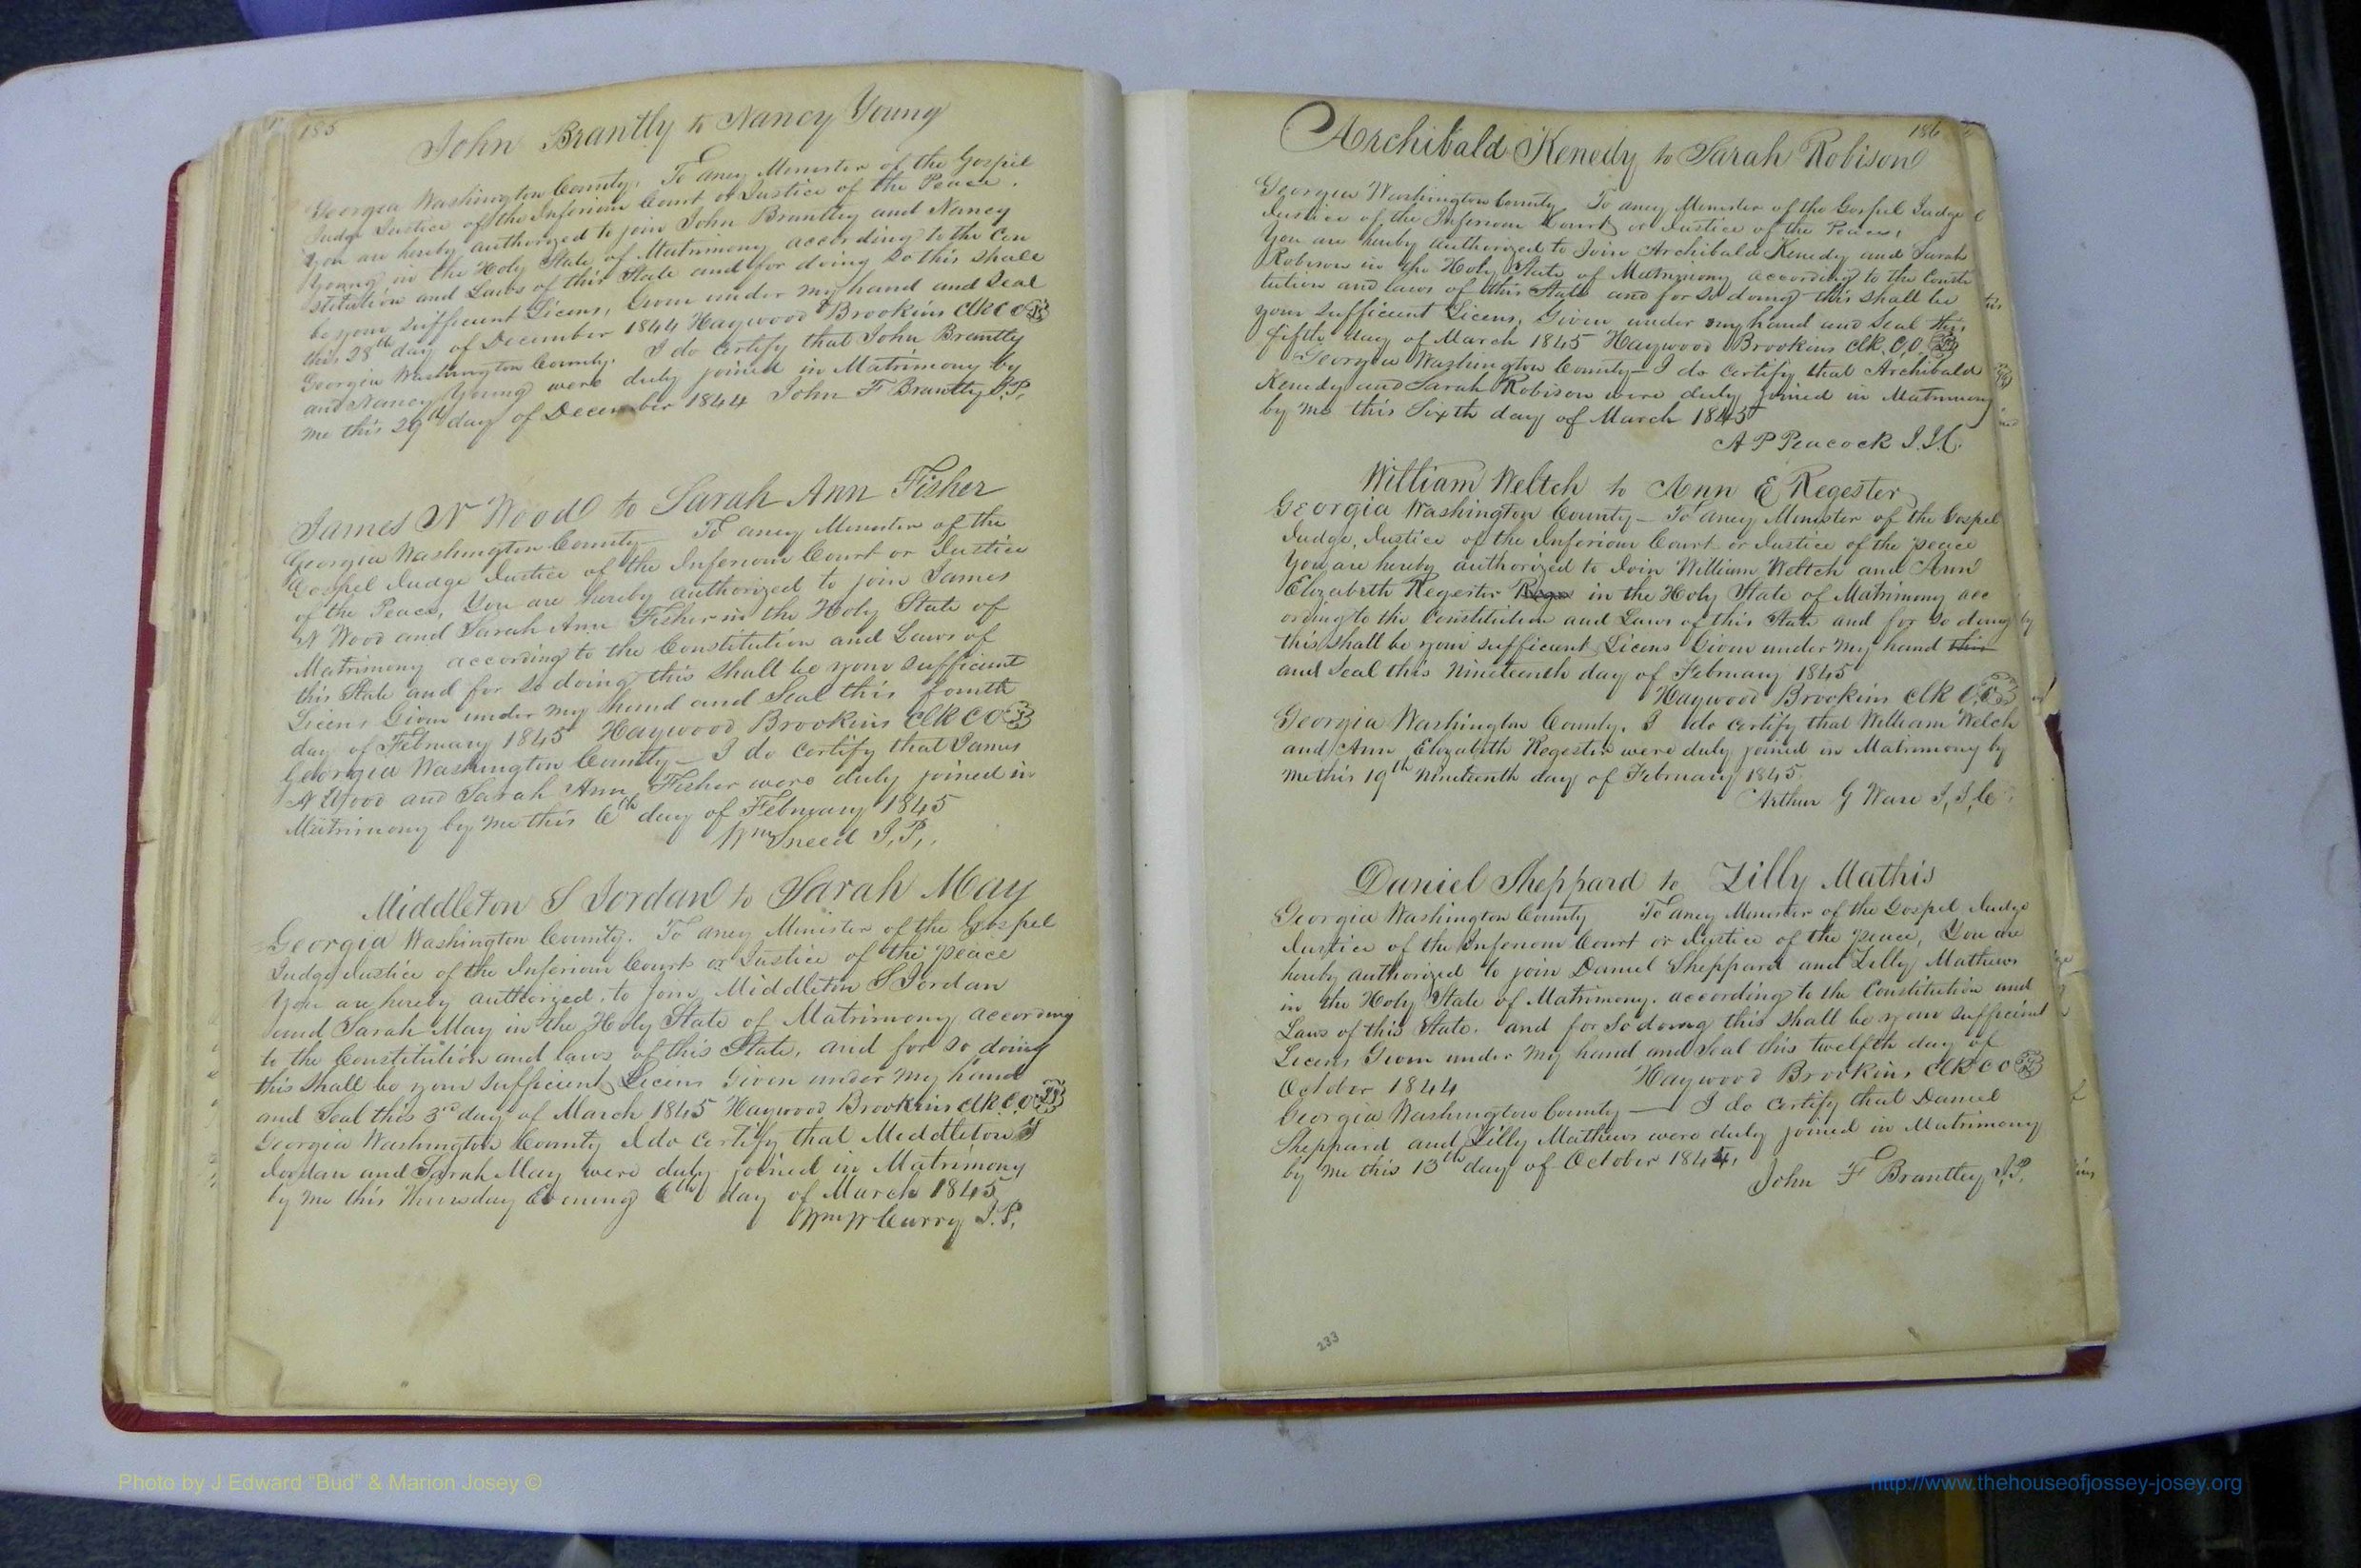 185
John Brantly to Nancy Young
Georgia Washington County. To aney Minister of the Gospel
Judge Justice of the Inferiour Court or Justice of the Peace.
You are hereby authorized to join John Brantley and Nancy
Young, in the Holy State of Matrimony according to the Con
stitution and Laws of this State and for doing so this shall
be your sufficient Licens, Given under my hand and Seal
this 28th day of December 1844 Haywood Brookins Clk C O
Georgia Washington County. I do certify that John Brantly
and Nancy Young were duly joined in Matrimony by
me this 29th day of December 1844 John F Brantly J.P.
James N Wood to Sarah Ann Fisher
Georgia Washington County — To aney Minister of the
Gospel Judge Justice of the Inferiour Court or Justice
of the Peace, You are hereby authorized to join James
N Wood and Sarah Ann Fisher in the Holy State of
Matrimony according to the Constitution and Laws of
this State and for so doing this shall be your sufficient
Licens Given under my hand and Seal this fourth
day of February 1845 Haywood Brookins Clk C O
Georgia Washington County — I do certify that James
N Wood and Sarah Ann Fisher were duly joined in
Matrimony by me this 6th day of February 1845
Wm Sneed J.P,.
Middleton S Jordan to Sarah May
Georgia Washington County. To aney Minister of the Gospel
Judge Justice of the Inferiour Court or Justice of the peace
You are hereby authorized, to join Middleton S Jordan
and Sarah May in the Holy State of Matrimony according
to the Constitution and laws of this State, and for so doing
this shall be your sufficient Licens Given under my hand
and Seal this 3rd day of March 1845 Haywood Brookins Clk C.O
Georgia Washington County I do certify that Middleton S
Jordan and Sarah May were duly joined in Matrimony
by me this Thursday Evening 6th day of March 1845
Wm W Curry J.P.
186
Archibald Kenedy to Sarah Robison
Georgia Washington County To aney Minister of the Gospel Judge
Justice of the Inferiour Court or Justice of the Peace,
You are hereby authorized to Join Archibald Kenedy and Sarah
Robison in the Holy State of Matrimony according to the Consti
tution and laws of this State and for so doing this shall be
your sufficient Licens, Given under my hand and Seal this
fifth day of March 1845 Haywood Brookins Clk. C,O,
Georgia Washington County — I do certify that Archibald
Kenedy and Sarah Robison were duly joined in Matrimony
by me this Sixth day of March 1845
A P Peacock J.I.C.
William Weltch to Ann E Regester
Georgia Washington County — To aney Minister of the Gospel
Judge, Justice of the Inferiour Court or Justice of the peace
You are hereby authorized to Join William Weltch and Ann
Elizabeth Regester Rege in the Holy State of Matrimony acc
ording to the Constitution and Laws of this State and for so doing
this shall be your sufficient Licens Given under my hand this
and Seal this Nineteenth day of February 1845
Haywood Brookins Clk C,O
Georgia Washington County. I do certify that William Welch
and Ann Elizabeth Regester were duly joined in Matrimony by
me this 19th Nineteenth day of February 1845.
Arthur G Ware J,I,C
Daniel Sheppard to Zilly Mathis
Georgia Washington County To aney Minister of the Gospel Judge
Justice of the Inferiour Court or Justice of the peace, You are
hereby authorized to join Daniel Sheppard and Zilly Mathews
in the Holy State of Matrimony. according to the Constitution and
Laws of this State. and for so doing this shall be your sufficient
Licens Given under my hand and Seal this twelfth day of
October 1844 Haywood Brookins Clk C O
Georgia Washington County — I do certify that Daniel
Sheppard and Zilly Mathews were duly joined in Matrimony
by me this 13th day of October 1844.
John F Brantley J.P.
233
Photo by J Edward “Bud” & Marion Josey ©
http://www.thehouseofjossey-josey.org